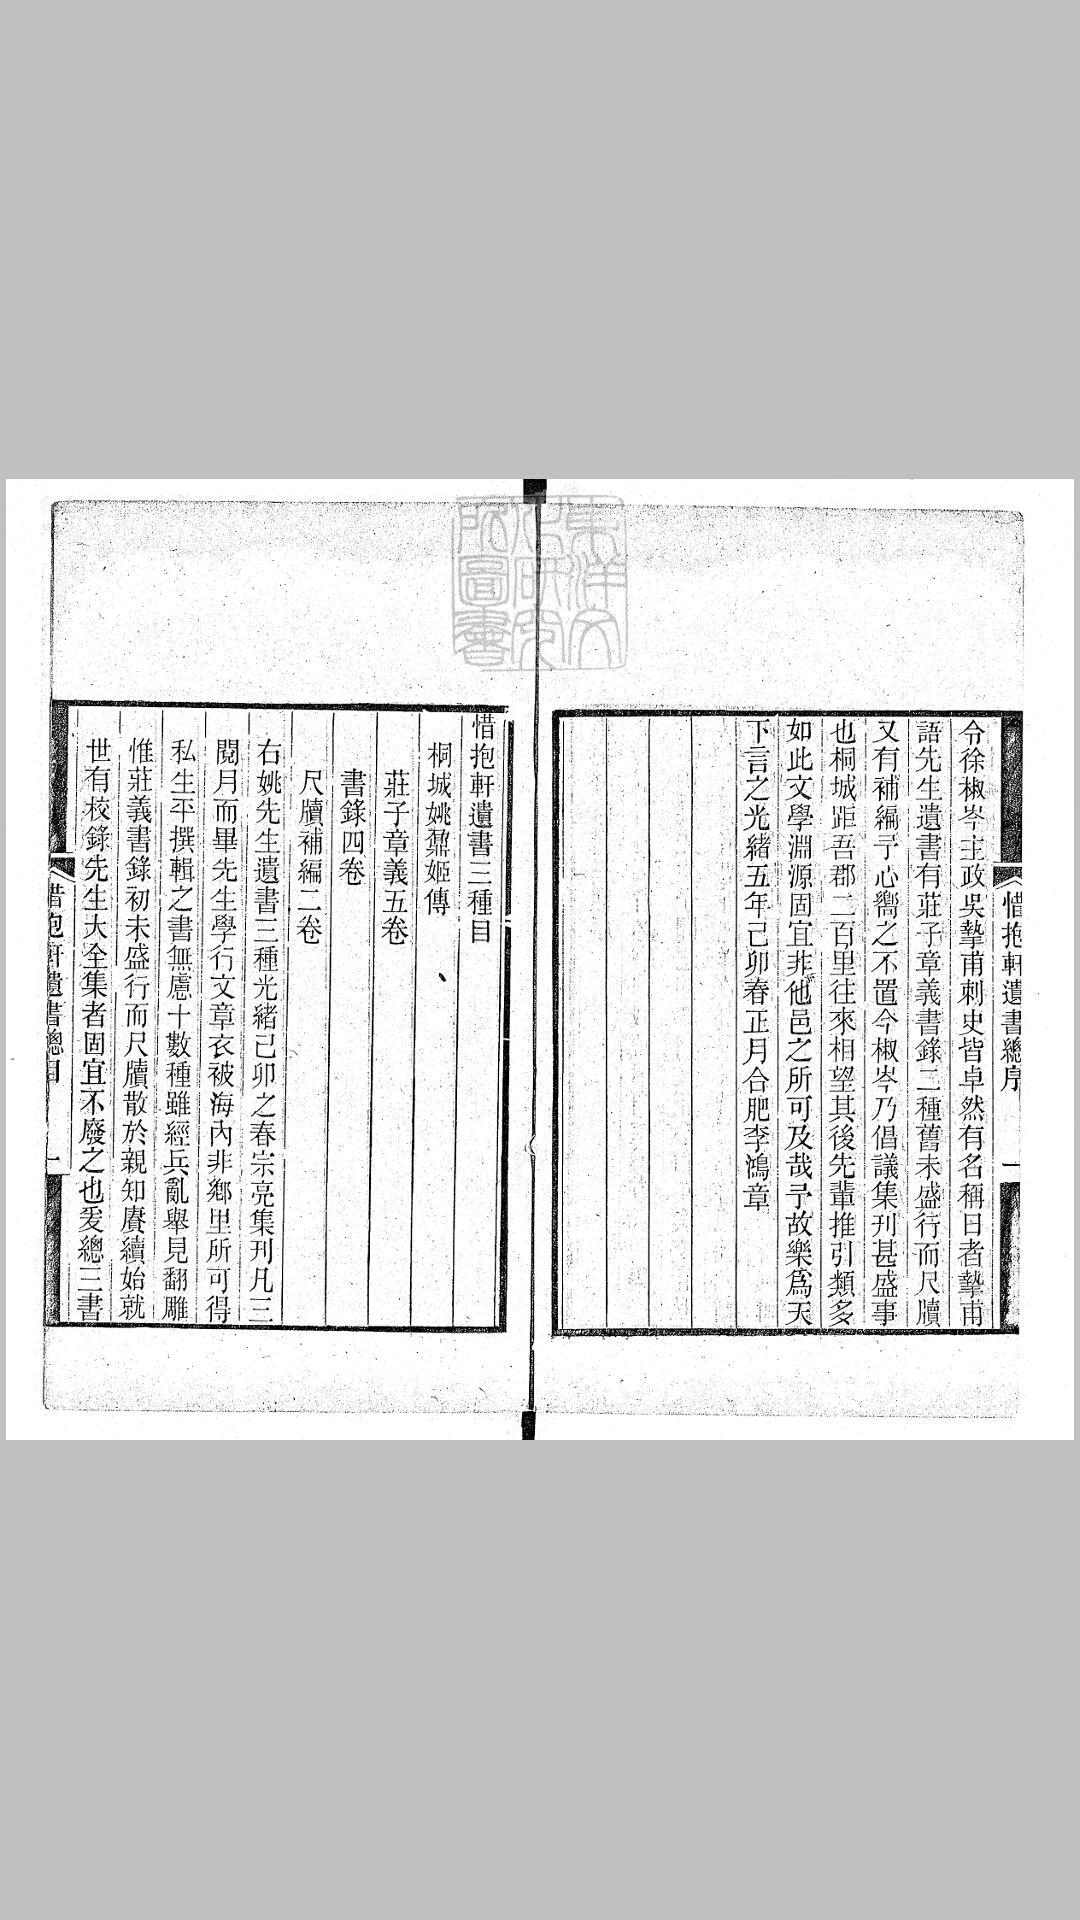 惜抱軒遺書總序
一
令徐椒岑主政吳摯甫刺史皆卓然有名稱日者摯甫
語先生遺書有莊子章義書錄二種舊未盛行而尺牘
又有補編予心嚮之不置今椒岑乃倡議集刊甚盛事
也桐城距吾郡二百里往來相望其後先輩推引類多
如此文學淵源固宜非他邑之所可及哉予故樂爲天
下言之光緒五年己卯春正月合肥李鴻章
惜抱軒遺書三種目
桐城姚鼐姬傳
莊子章義五卷
書錄四卷
尺牘補編二卷
右姚先生遺書三種光緒己卯之春宗亮集刊凡三
閱月而畢先生學行文章衣被海內非鄉里所可得
私生平撰輯之書無慮十數種雖經兵亂舉見翻雕
惟莊義書錄初未盛行而尺牘散於親知賡續始就
世有校錄先生大全集者固宜不廢之也爰總三書
惜抱軒遺書總目
一
東洋文
化研究
所圖書